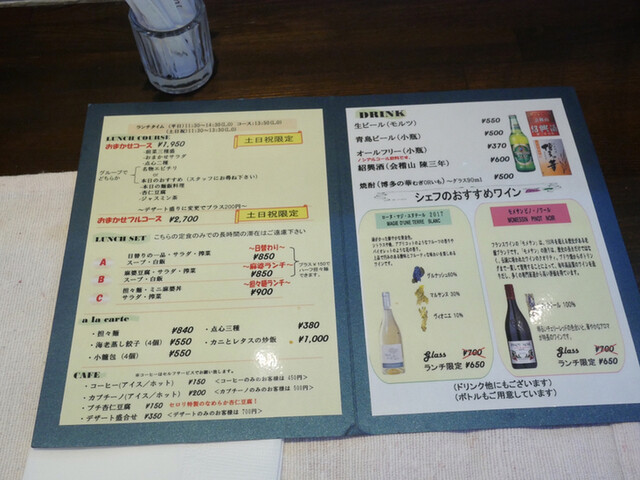 ランチタイム
LUNCH COURSE
土日祝限定
おまかせコース ¥1,950
・前菜三種盛
・おまかせサラダ
・点心二種
・名物エビチリ
or
グループで
どちらか
・本日のおすすめ（スタッフにお尋ね下さい）
・本日の麺飯料理
・杏仁豆腐
・ジャスミン茶
～デザート盛りに変更でプラス200円～
おまかせフルコース ¥2,700
土日祝限定
LUNCH SET こちらの定食のみでの長時間の滞在はご遠慮下さい
～日替わり～
A 日替りの一品・サラダ・搾菜 ¥850
スープ・白飯
～麻婆ランチ～
B 麻婆豆腐・サラダ・搾菜 ¥850
スープ・白飯
～担々麺ランチ～
C 担々麺・ミニ麻婆丼 ¥900
サラダ・搾菜
プラス¥150で
a la carte
・担々麺 ¥840
・点心三種 ¥380
・海老蒸し餃子（4個） ¥550
・カニとレタスの炒飯 ¥1,000
・小籠包（4個） ¥550
CAFE ※コーヒーはセルフサービスでお願い致します。
・コーヒー（アイス／ホット） ¥150 <コーヒーのみのお客様は 450円>
・カプチーノ（アイス／ホット） ¥200 <カプチーノのみのお客様は 500円>
・プチ杏仁豆腐 ¥150
・デザート盛合せ ¥350 <デザートのみのお客様は 700円>
DRINK
生ビール（モルツ） ¥550
青島ビール（小瓶） ¥500
オールフリー（小瓶） ¥370
ノンアルコール飲料です。
紹興酒（会稽山 陳三年） ¥600
～グラス90ml
焼酎（博多の華むぎ／いも） ¥500
シェフのおすすめワイン
2017
MAGIE D'ONE TERRE BLANC
マルサンヌ 30%
ヴィオニエ 10%
glass ¥700
ランチ限定 ¥650
モメサン ピノ・ノワール
MOMESSIN PINOT NOIR
ピノ・ノワール 100%
glass ¥700
ランチ限定 ¥650
（ドリンク他にもございます）
（ボトルもご用意しています）